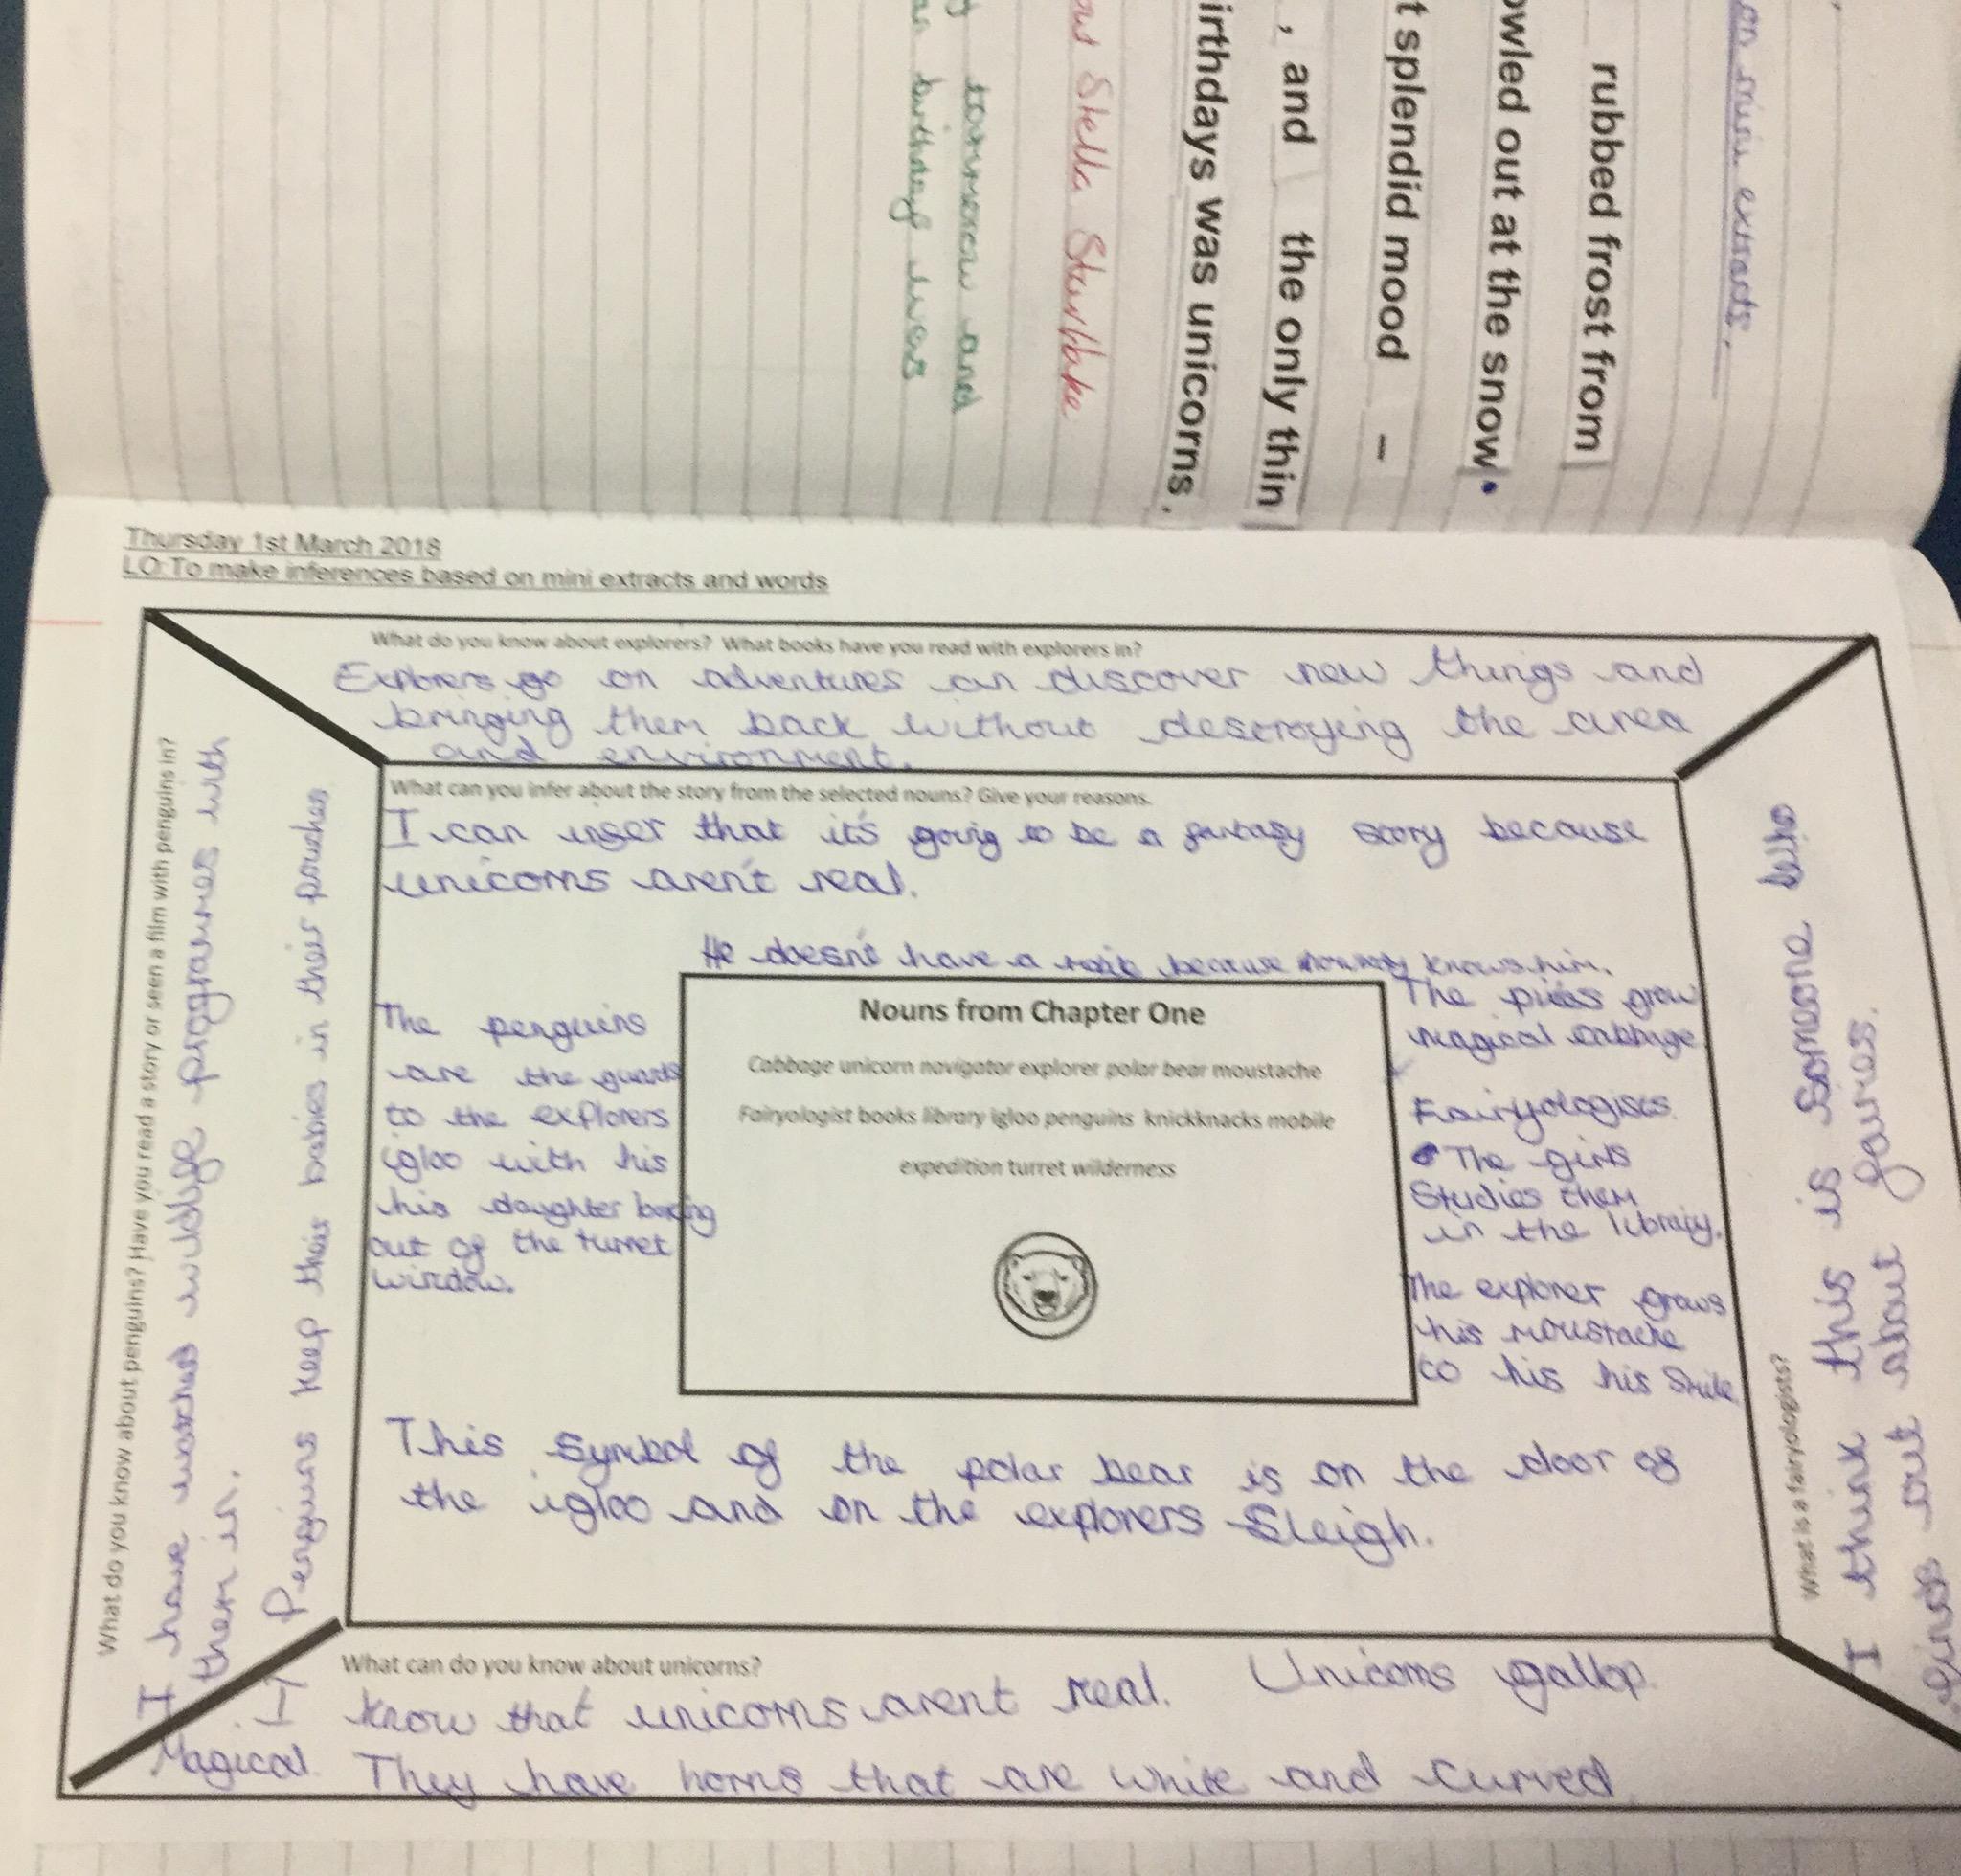 on mini extracts.
rubbed frost from
owled out at the snow.
t splendid mood –
, and the only thin
irthdays was unicorns.
Stella Starflake
tommorow and
birthday was
Thursday 1st March 2018
LO:To make inferences based on mini extracts and words
What do you know about explorers? What books have you read with explorers in?
Explorers go on adventures an discover new things and
bringing them back without destroying the area
and environment.
What do you know about penguins? Have you read a story or seen a film with penguins in?
I have watched wildlife programmes with
them in.
Penguins keep their babies in their pouches
What can you infer about the story from the selected nouns? Give your reasons.
I can infer that it's going to be a fantasy story because
unicorns aren't real.
He doesn't have a because knows him.
The penguins
are the guards
to the explorers
igloo with his
his daughter
out of the turret
window.
Nouns from Chapter One
Cabbage unicorn navigator explorer polar bear moustache
Fairyologist books library igloo penguins knickknacks mobile
expedition turret wilderness
The grow
magical cabbage
Fairyologists
The girls
Studies them
in the library.
The explorer grows
his moustache
to his his Smile
This Symbol of the polar bear is on the door of
the igloo and on the explorers Sleigh.
What is a fairyologists?
I think this is someone who
finds out about fairies.
What can do you know about unicorns?
I know that unicorns arent real. Unicorns gallop.
Magical They have horns that are white and curved